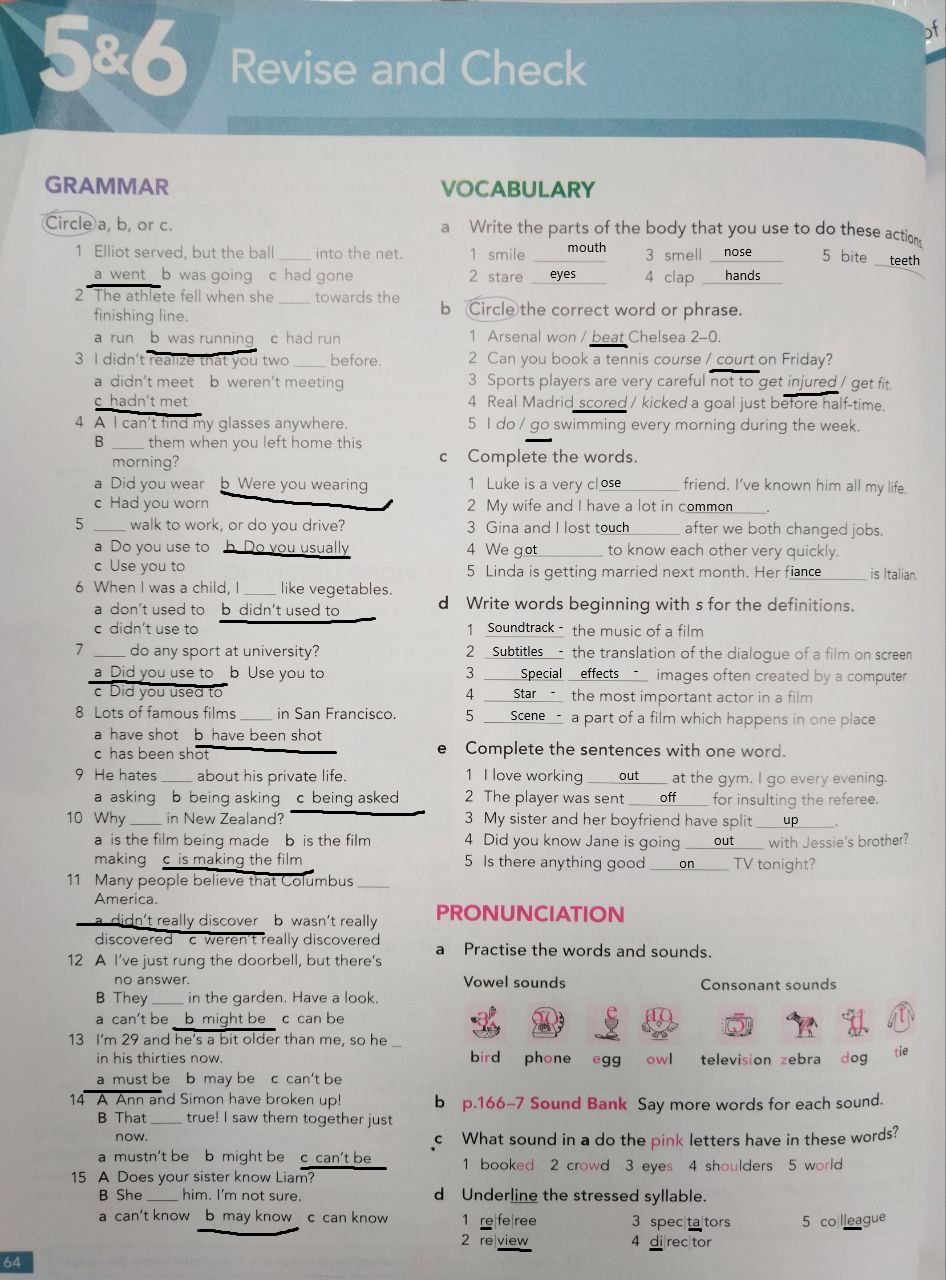 5&6 Revise and Check
GRAMMAR
Circle a, b, or c.
1 Elliot served, but the ball ____ into the net.
a went b was going c had gone
2 The athlete fell when she ____ towards the
finishing line.
a run b was running c had run
3 I didn't realize that you two ____ before.
a didn't meet b weren't meeting
c hadn't met
4 A I can't find my glasses anywhere.
B ____ them when you left home this
morning?
a Did you wear b Were you wearing
c Had you worn
5 ____ walk to work, or do you drive?
a Do you use to b Do you usually
c Use you to
6 When I was a child, I ____ like vegetables.
a don't used to b didn't used to
c didn't use to
7 ____ do any sport at university?
a Did you use to b Use you to
c Did you used to
8 Lots of famous films ____ in San Francisco.
a have shot b have been shot
c has been shot
9 He hates ____ about his private life.
a asking b being asking c being asked
10 Why ____ in New Zealand?
a is the film being made b is the film
making c is making the film
11 Many people believe that Columbus ____
America.
a didn't really discover b wasn't really
discovered c weren't really discovered
12 A I've just rung the doorbell, but there's
no answer.
B They ____ in the garden. Have a look.
a can't be b might be c can be
13 I'm 29 and he's a bit older than me, so he _
in his thirties now.
a must be b may be c can't be
14 A Ann and Simon have broken up!
B That ____ true! I saw them together just
now.
a mustn't be b might be c can't be
15 A Does your sister know Liam?
B She ____ him. I'm not sure.
a can't know b may know c can know
64
VOCABULARY
a Write the parts of the body that you use to do these actions
1 smile mouth 3 smell nose 5 bite teeth
2 stare eyes 4 clap hands
b Circle the correct word or phrase.
1 Arsenal won / beat Chelsea 2–0.
2 Can you book a tennis course / court on Friday?
3 Sports players are very careful not to get injured / get fit.
4 Real Madrid scored / kicked a goal just before half-time.
5 I do / go swimming every morning during the week.
c Complete the words.
1 Luke is a very close friend. I've known him all my life.
2 My wife and I have a lot in common.
3 Gina and I lost touch after we both changed jobs.
4 We got to know each other very quickly.
5 Linda is getting married next month. Her fiance is Italian.
d Write words beginning with s for the definitions.
1 Soundtrack - the music of a film
2 Subtitles - the translation of the dialogue of a film on screen
3 Special effects - images often created by a computer
4 Star - the most important actor in a film
5 Scene - a part of a film which happens in one place
e Complete the sentences with one word.
1 I love working out at the gym. I go every evening.
2 The player was sent off for insulting the referee.
3 My sister and her boyfriend have split up.
4 Did you know Jane is going out with Jessie's brother?
5 Is there anything good on TV tonight?
PRONUNCIATION
a Practise the words and sounds.
Vowel sounds Consonant sounds
bird phone egg owl television zebra dog tie
b p.166–7 Sound Bank Say more words for each sound.
c What sound in a do the pink letters have in these words?
1 booked 2 crowd 3 eyes 4 shoulders 5 world
d Underline the stressed syllable.
1 re|fe|ree 3 spec|ta|tors 5 co|lleague
2 re|view 4 di|rec|tor
of